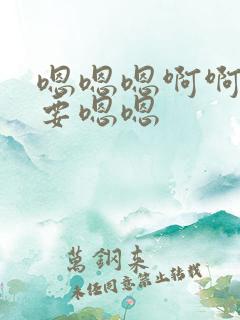 嗯嗯嗯啊啊
要嗯嗯
萬鋼來
未经同意禁止转载